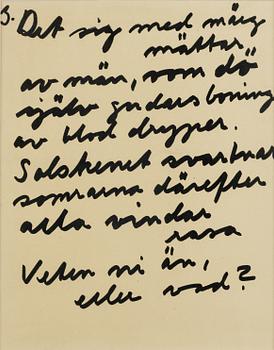 3. Det sig med märg
mättar
av män, som dö
själv gudars boning
av blod dryper.
Solskenet svartnar
somrarna därefter
alla vindar
rasa
Veten ni än,
eller vad?